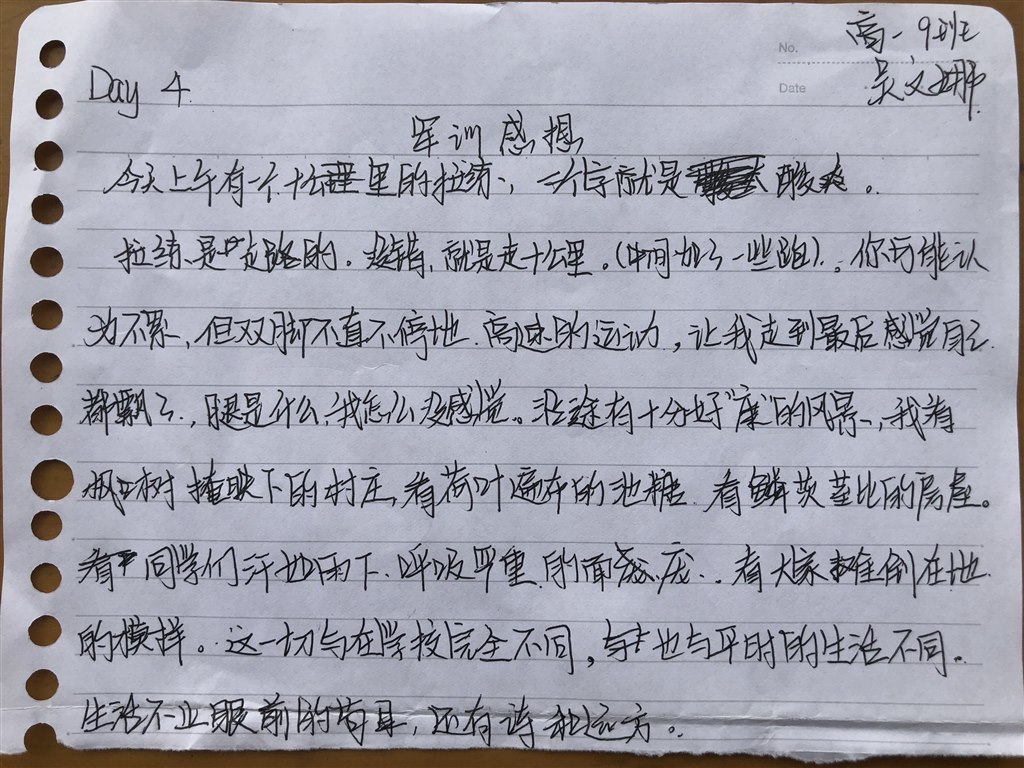 No.
高一9班
Date
吴文娜
Day 4
军训感想
今天上午有一个十公里的拉练,三个字就是酸爽。
拉练是走路的。没错,就是走十公里。(中间加了一些跑)。你可能认
为不累,但双脚不直不停地高速的运动,让我走到最后感觉自己
都飘了,腿是什么,我怎么没感觉。沿途有十分好"康"的风景,我有
树掩映下的村庄,有荷叶遍布的池糖.有鳞茨荃比的房屋。
有同学们汗如雨下.呼吸严重的面庞.有大家摊倒在地
的模样。这一切与在学校完全不同,也与平时的生活不同。
生活不止眼前的苟且,还有诗和远方。